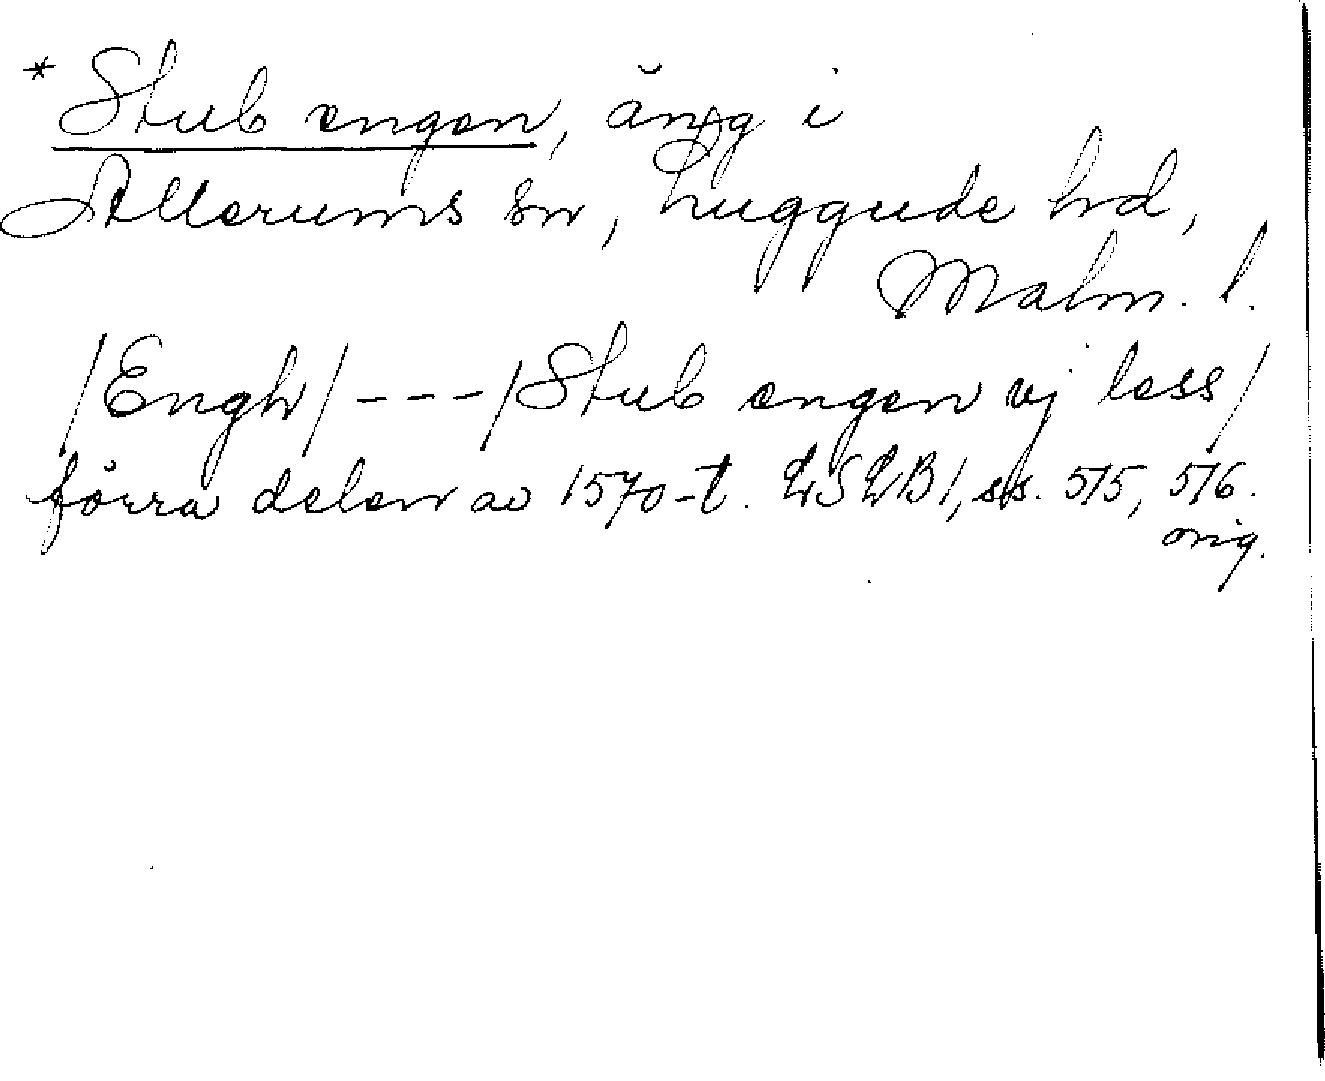 * Stub engen, äng i
Allerums sn, Luggude hd,
Malm. l.
/Engh/ - - - /Stub engen vj less/
förra delen av 1570-t. LSLB 1, ss. 575, 576.
orig.